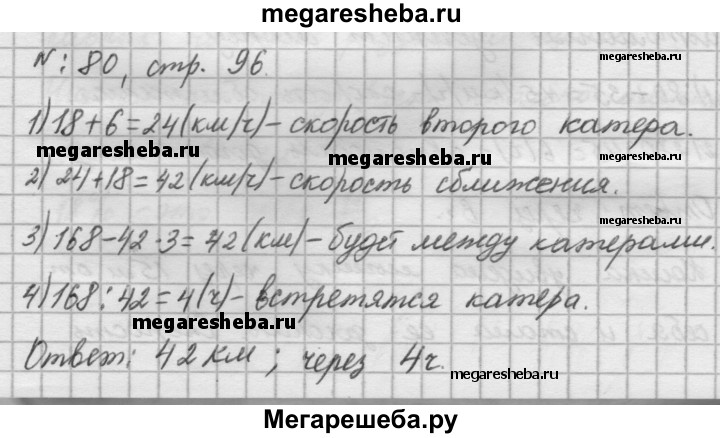 megaresheba.ru
№: 80, стр. 96.
megaresheba.ru
1) 18+6=24(км/ч)-скорость второго катера.
megaresheba.ru
megaresheba.ru
2) 24+18=42(км/ч)-скорость сближения.
megaresheba.ru
3) 168-42·3=42(км)-будет между катерами.
4) 168:42=4(ч)-встретятся катера.
megaresheba.ru
Ответ: 42 км; через 4ч.
megaresheba.ru
Мегарешеба.ру